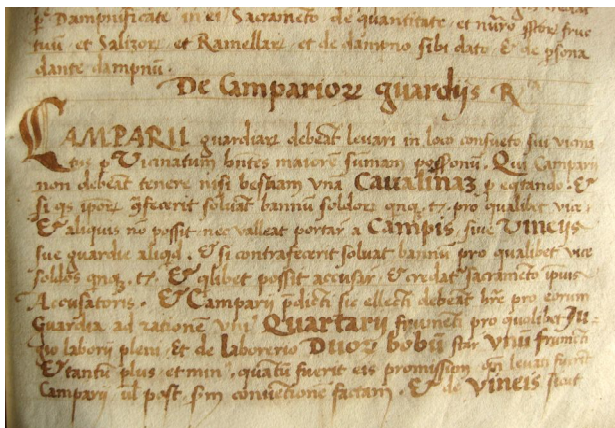 p Dampnificate in ei Sacrameto de quantitate et nuro istor fruc
tuu et Salizor et Ramellar et de dampno sibi dato & de psona
dante dampnu.
De Camparior guardijs R
CAMPARII guardiar debeat levari in loco consueto sui vicna
tus p Vicanatum hntes maiore sumam possonu. Qui Camparij
non debeat tenere nisi bestiam vna Caualinaz p eqtando. &
si qs ipor qfecerit soluat bannu soldor qnqz tz pro qualibet vice
& aliquis no possit nec valleat portar a Campis siue Vineijs
sue guardie aliqd. & si contrafecerit soluat bannu pro qualibet vice
soldos qnqz tz. & qlibet possit accusar & credat sacrameto ipius
Accusatoris. & Camparij pdicti sic ellecti debeat hre pro eorum
Guardia ad ratione vniu Quartarij frumeti pro quolibet Ju
gio laborij pleni. Et de laborerio Duor bobu star vniu frumeti
& tantu plus et min quatu fuerit eis promission qn levati fuerit
Camparij vl post sm conuetione factam. & de vineis sicut